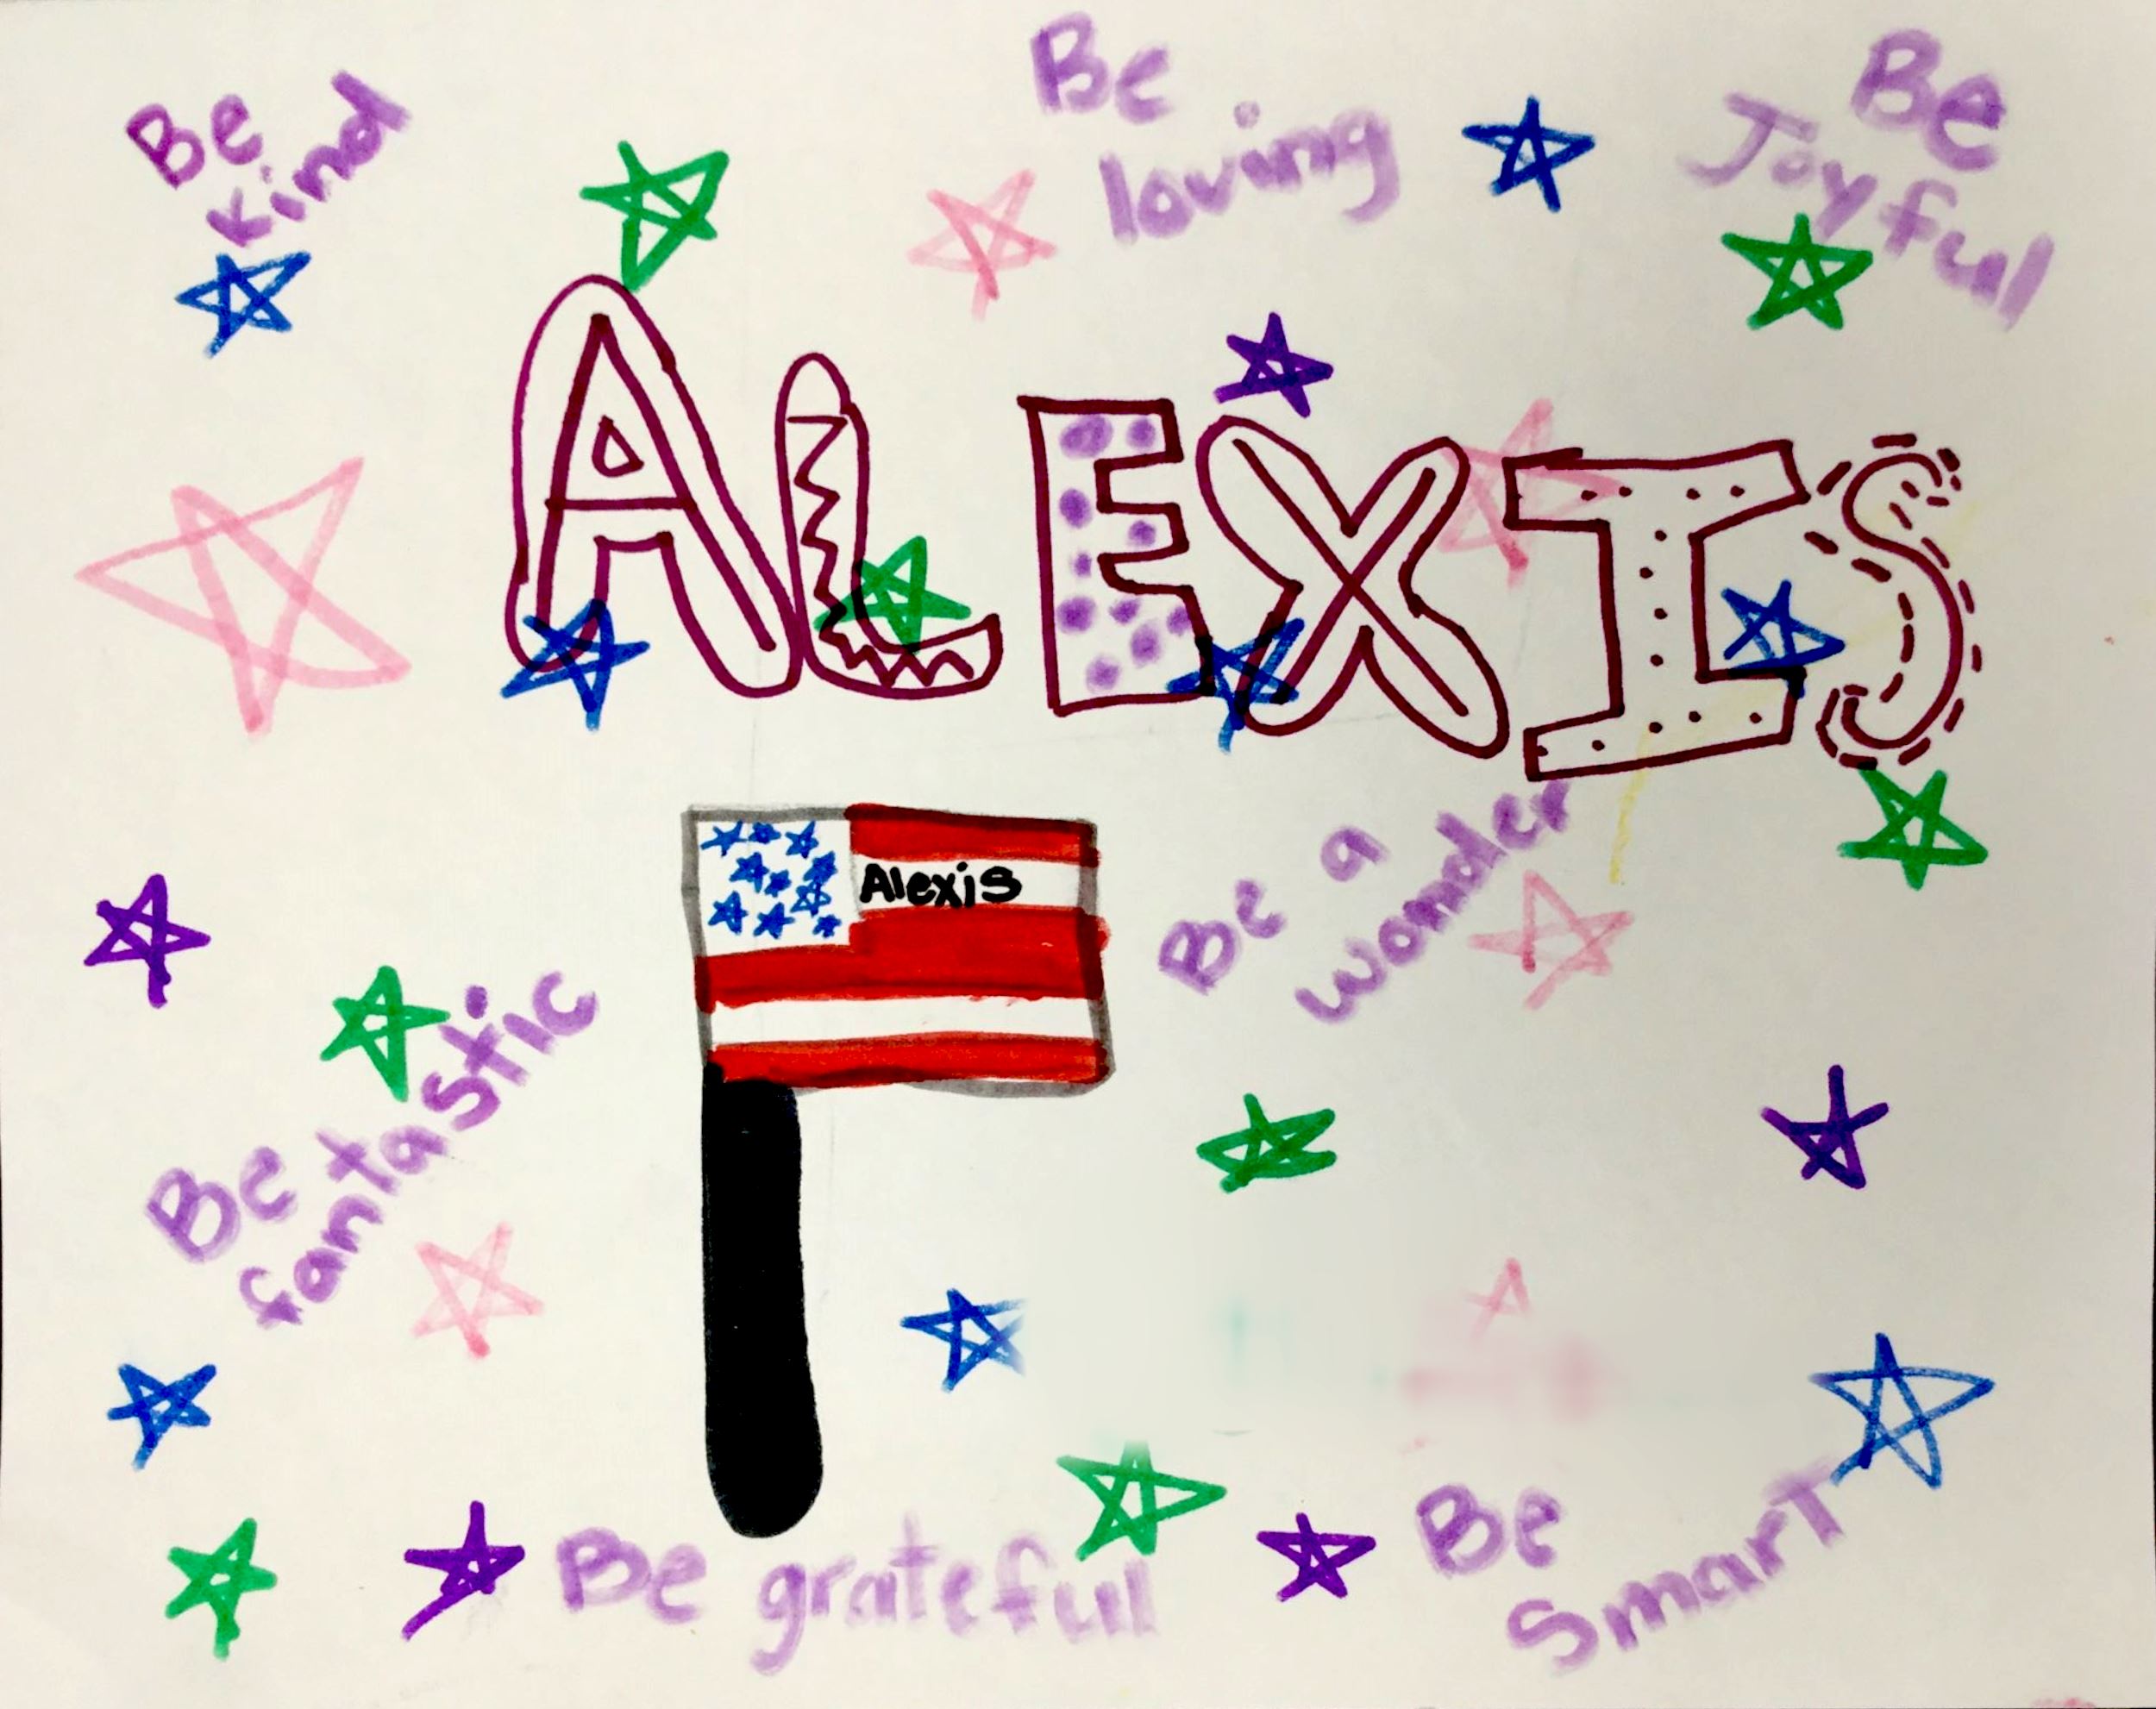 Be
kind
Be
loving
Be
Joyful
ALEXIS
Alexis
Be a
wonder
Be
fantastic
Be grateful
Be
SmarT